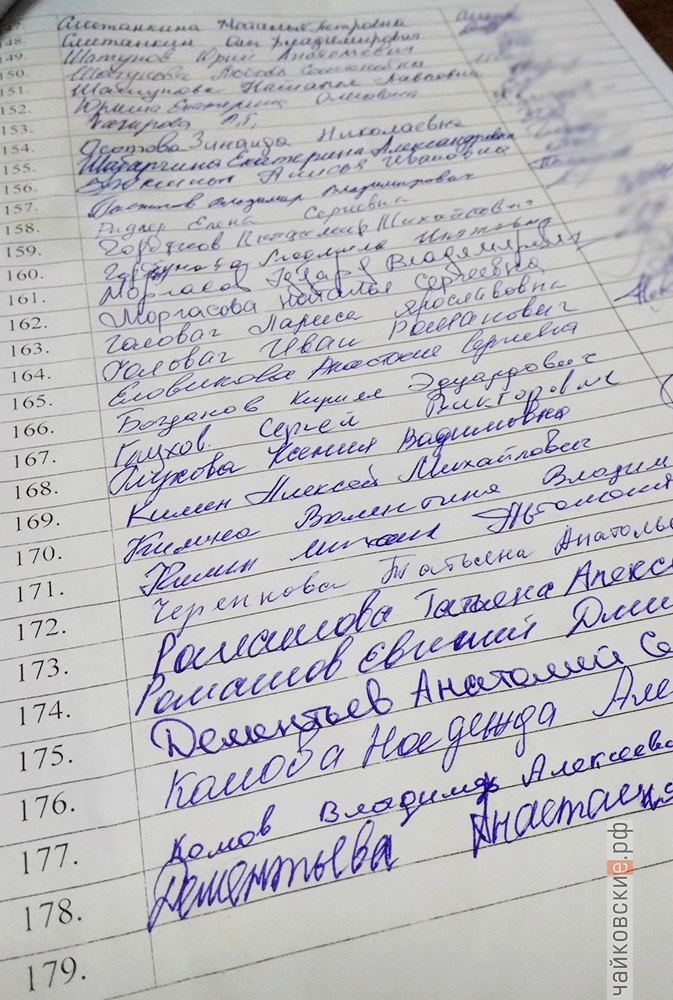 148. Сметанкина Наталья Петровна
149. Сметанкин Олег Владимирович
150. Шатунов Юрий Анатольевич
151. Шатунова Любовь
152. Наталья Павловна
153. Юрмина Екатерина Олеговна
154. А.Г.
155. Осотова Зинаида Николаевна
156. Шабаргина Екатерина Александровна
Алисья Ивановна
157. Владимир Владимирович
158. Ридлер Елена Сергеевна
159. Городков Владимир Михайлович
160. Людмила
161. Моргасов Эдуард Владимирович
162. Моргасова Наталья Сергеевна
163. Головач Лариса Ярославовна
164. Головач Иван Романович
165. Еловикова Анастасия Сергеевна
166. Богданов Кирилл Эдуардович
167. Глухов Сергей Викторович
168. Глухова Ксения Вадимовна
169. Килин Алексей Михайлович
170. Килина Валентина Владим
171. Килин Михаил
172. Черепкова Татьяна Анатолье
173. Ромашова Татьяна Алекс
174. Ромашов Евгений Дми
175. Дементьев Анатолий Се
176. Комова Надежда Але
177. Комов Владимир Алексееви
178. Дементьева Анастасия
179.
чайковские.рф